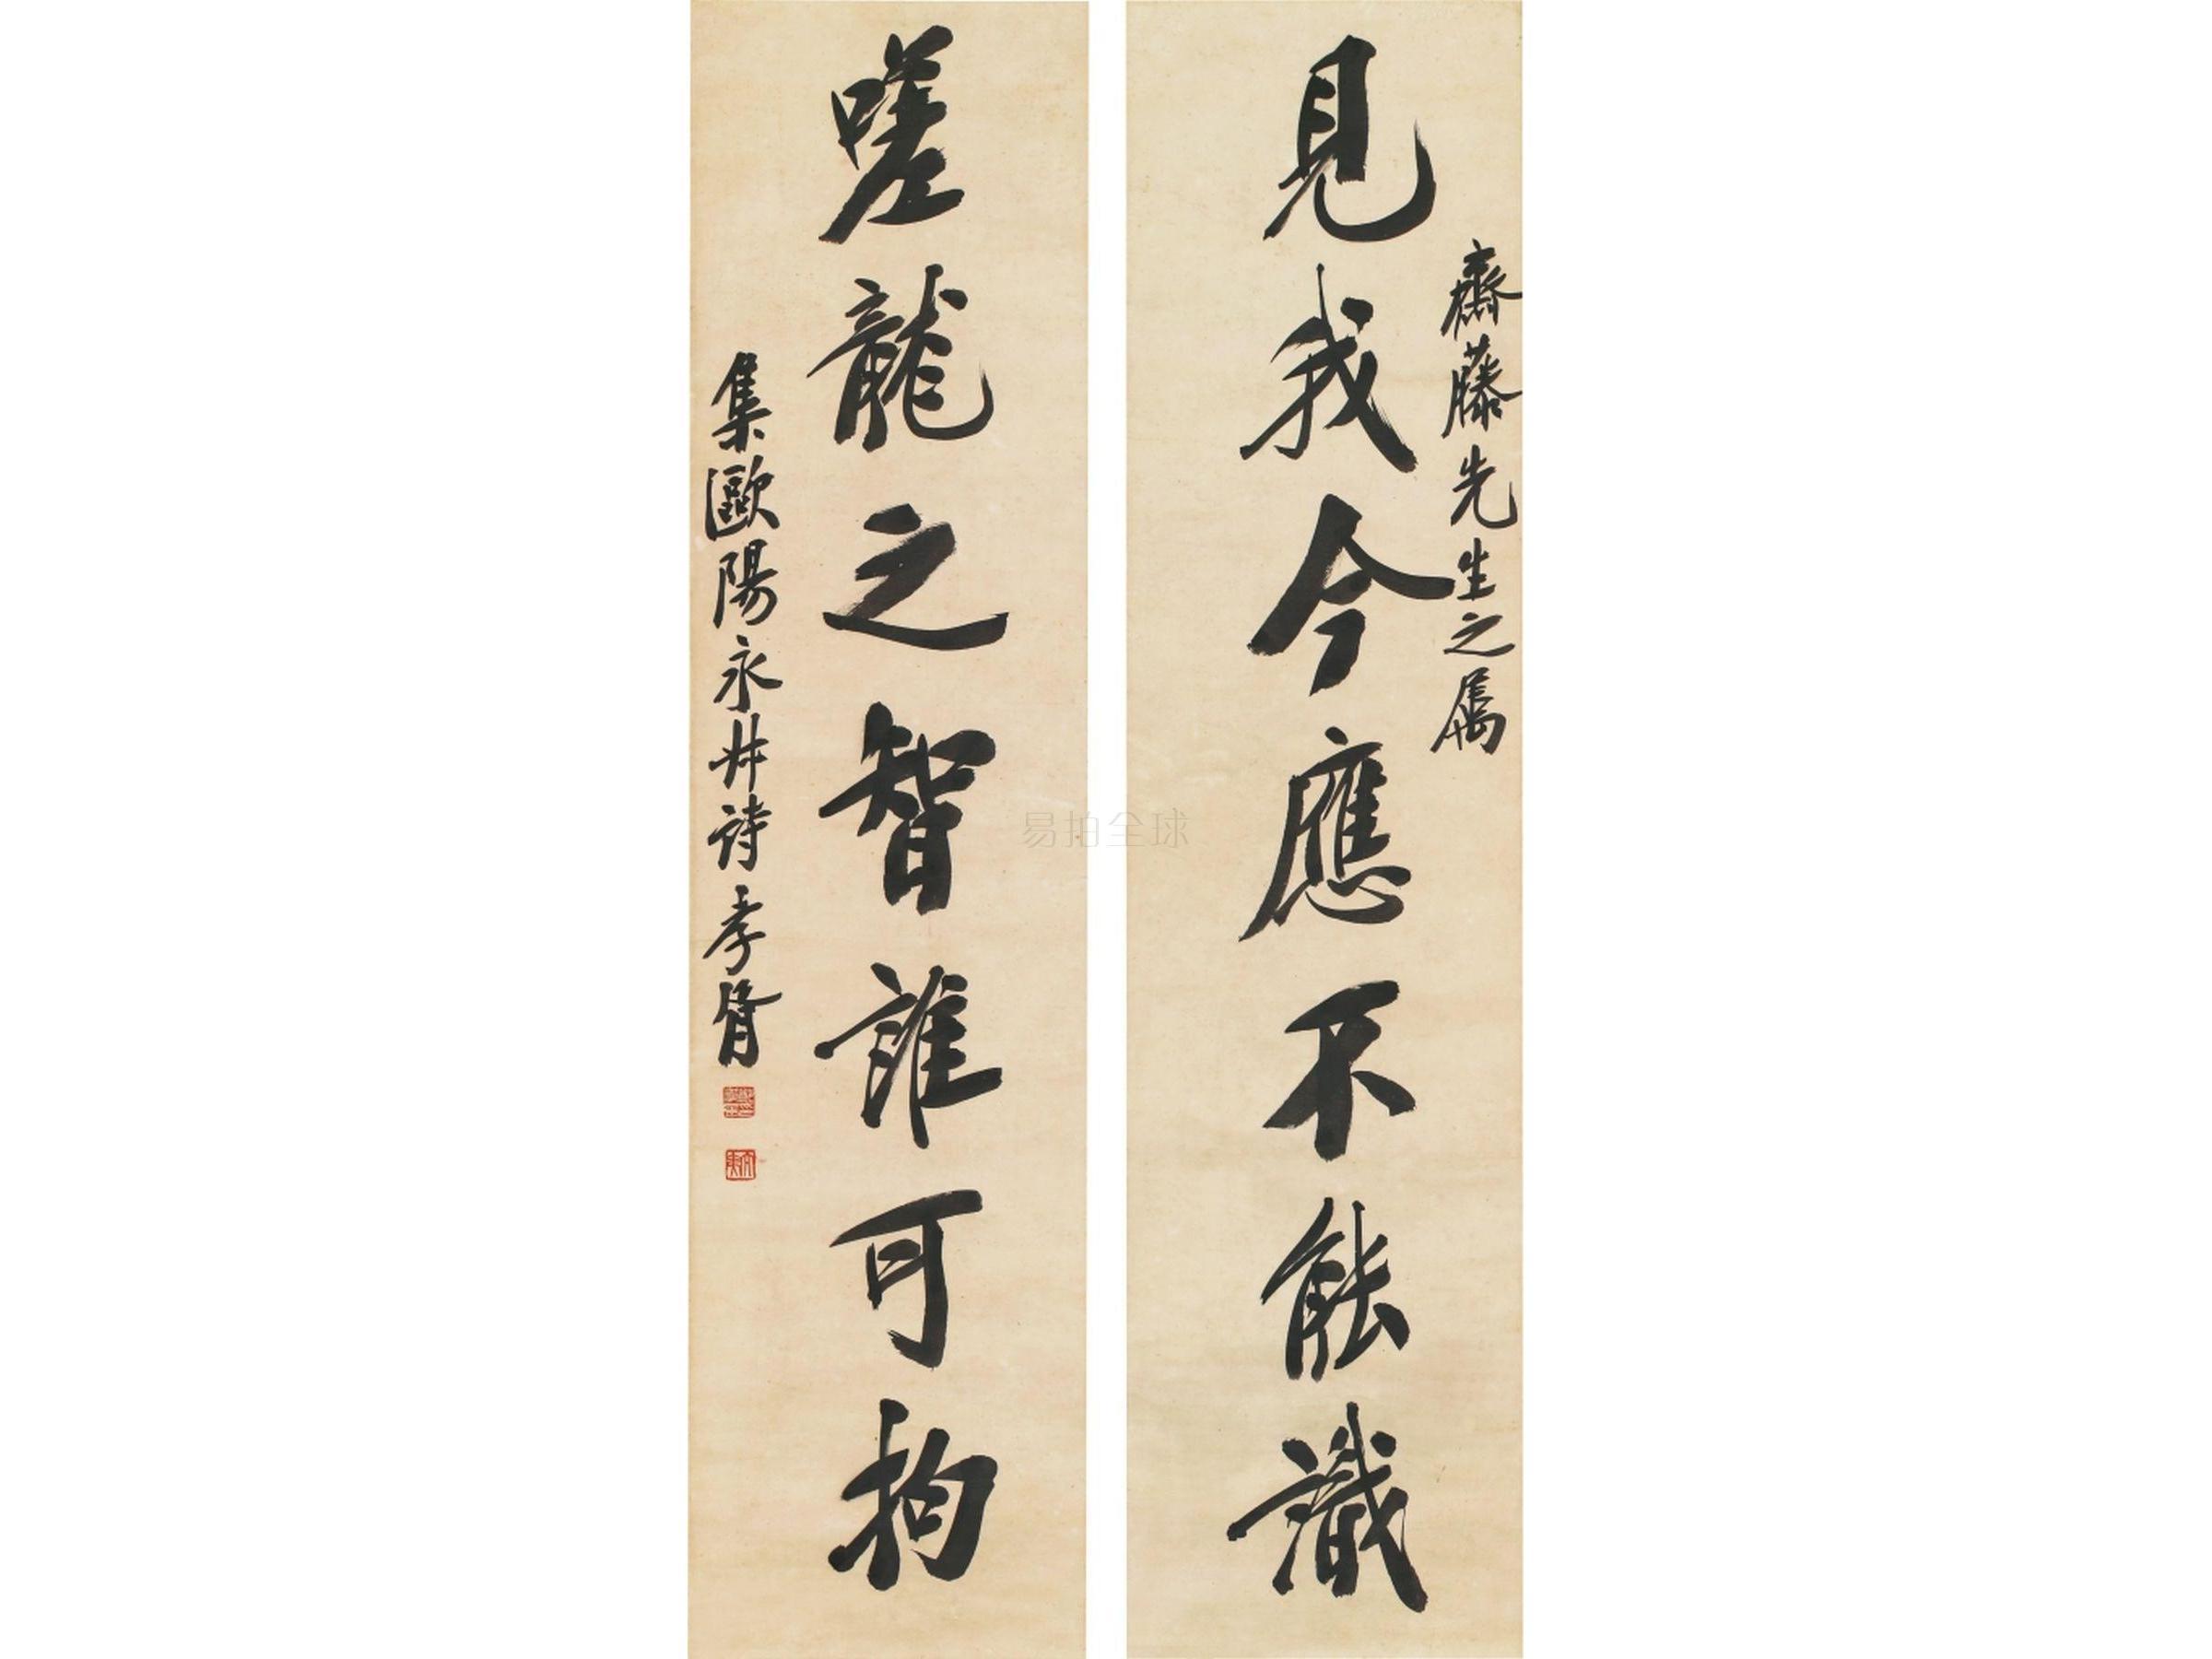 齋藤先生之屬
見我今應不能識
嗟龍之智誰可拘
集歐陽永叔詩 孝胥
易拍全球